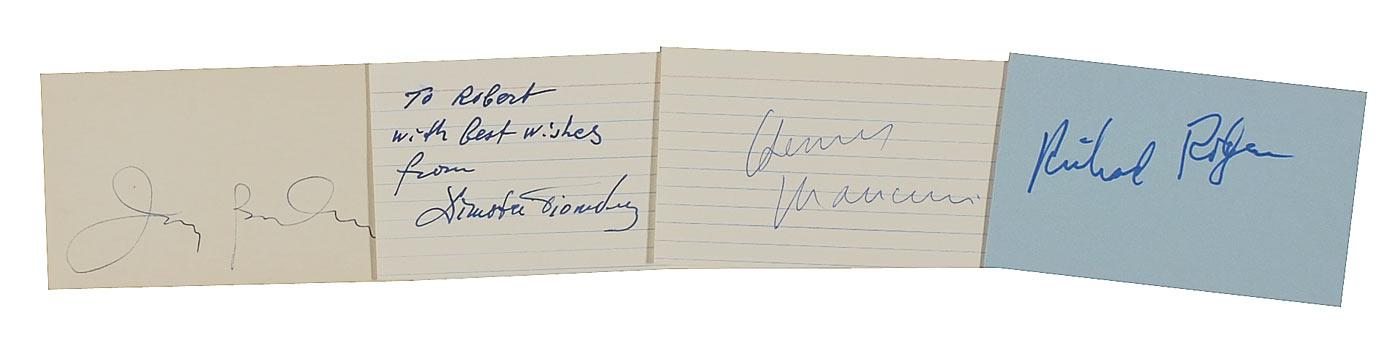 To Robert
with best wishes
from
Dimitri Tiomkin
Henry
Mancini
Richard Rodgers